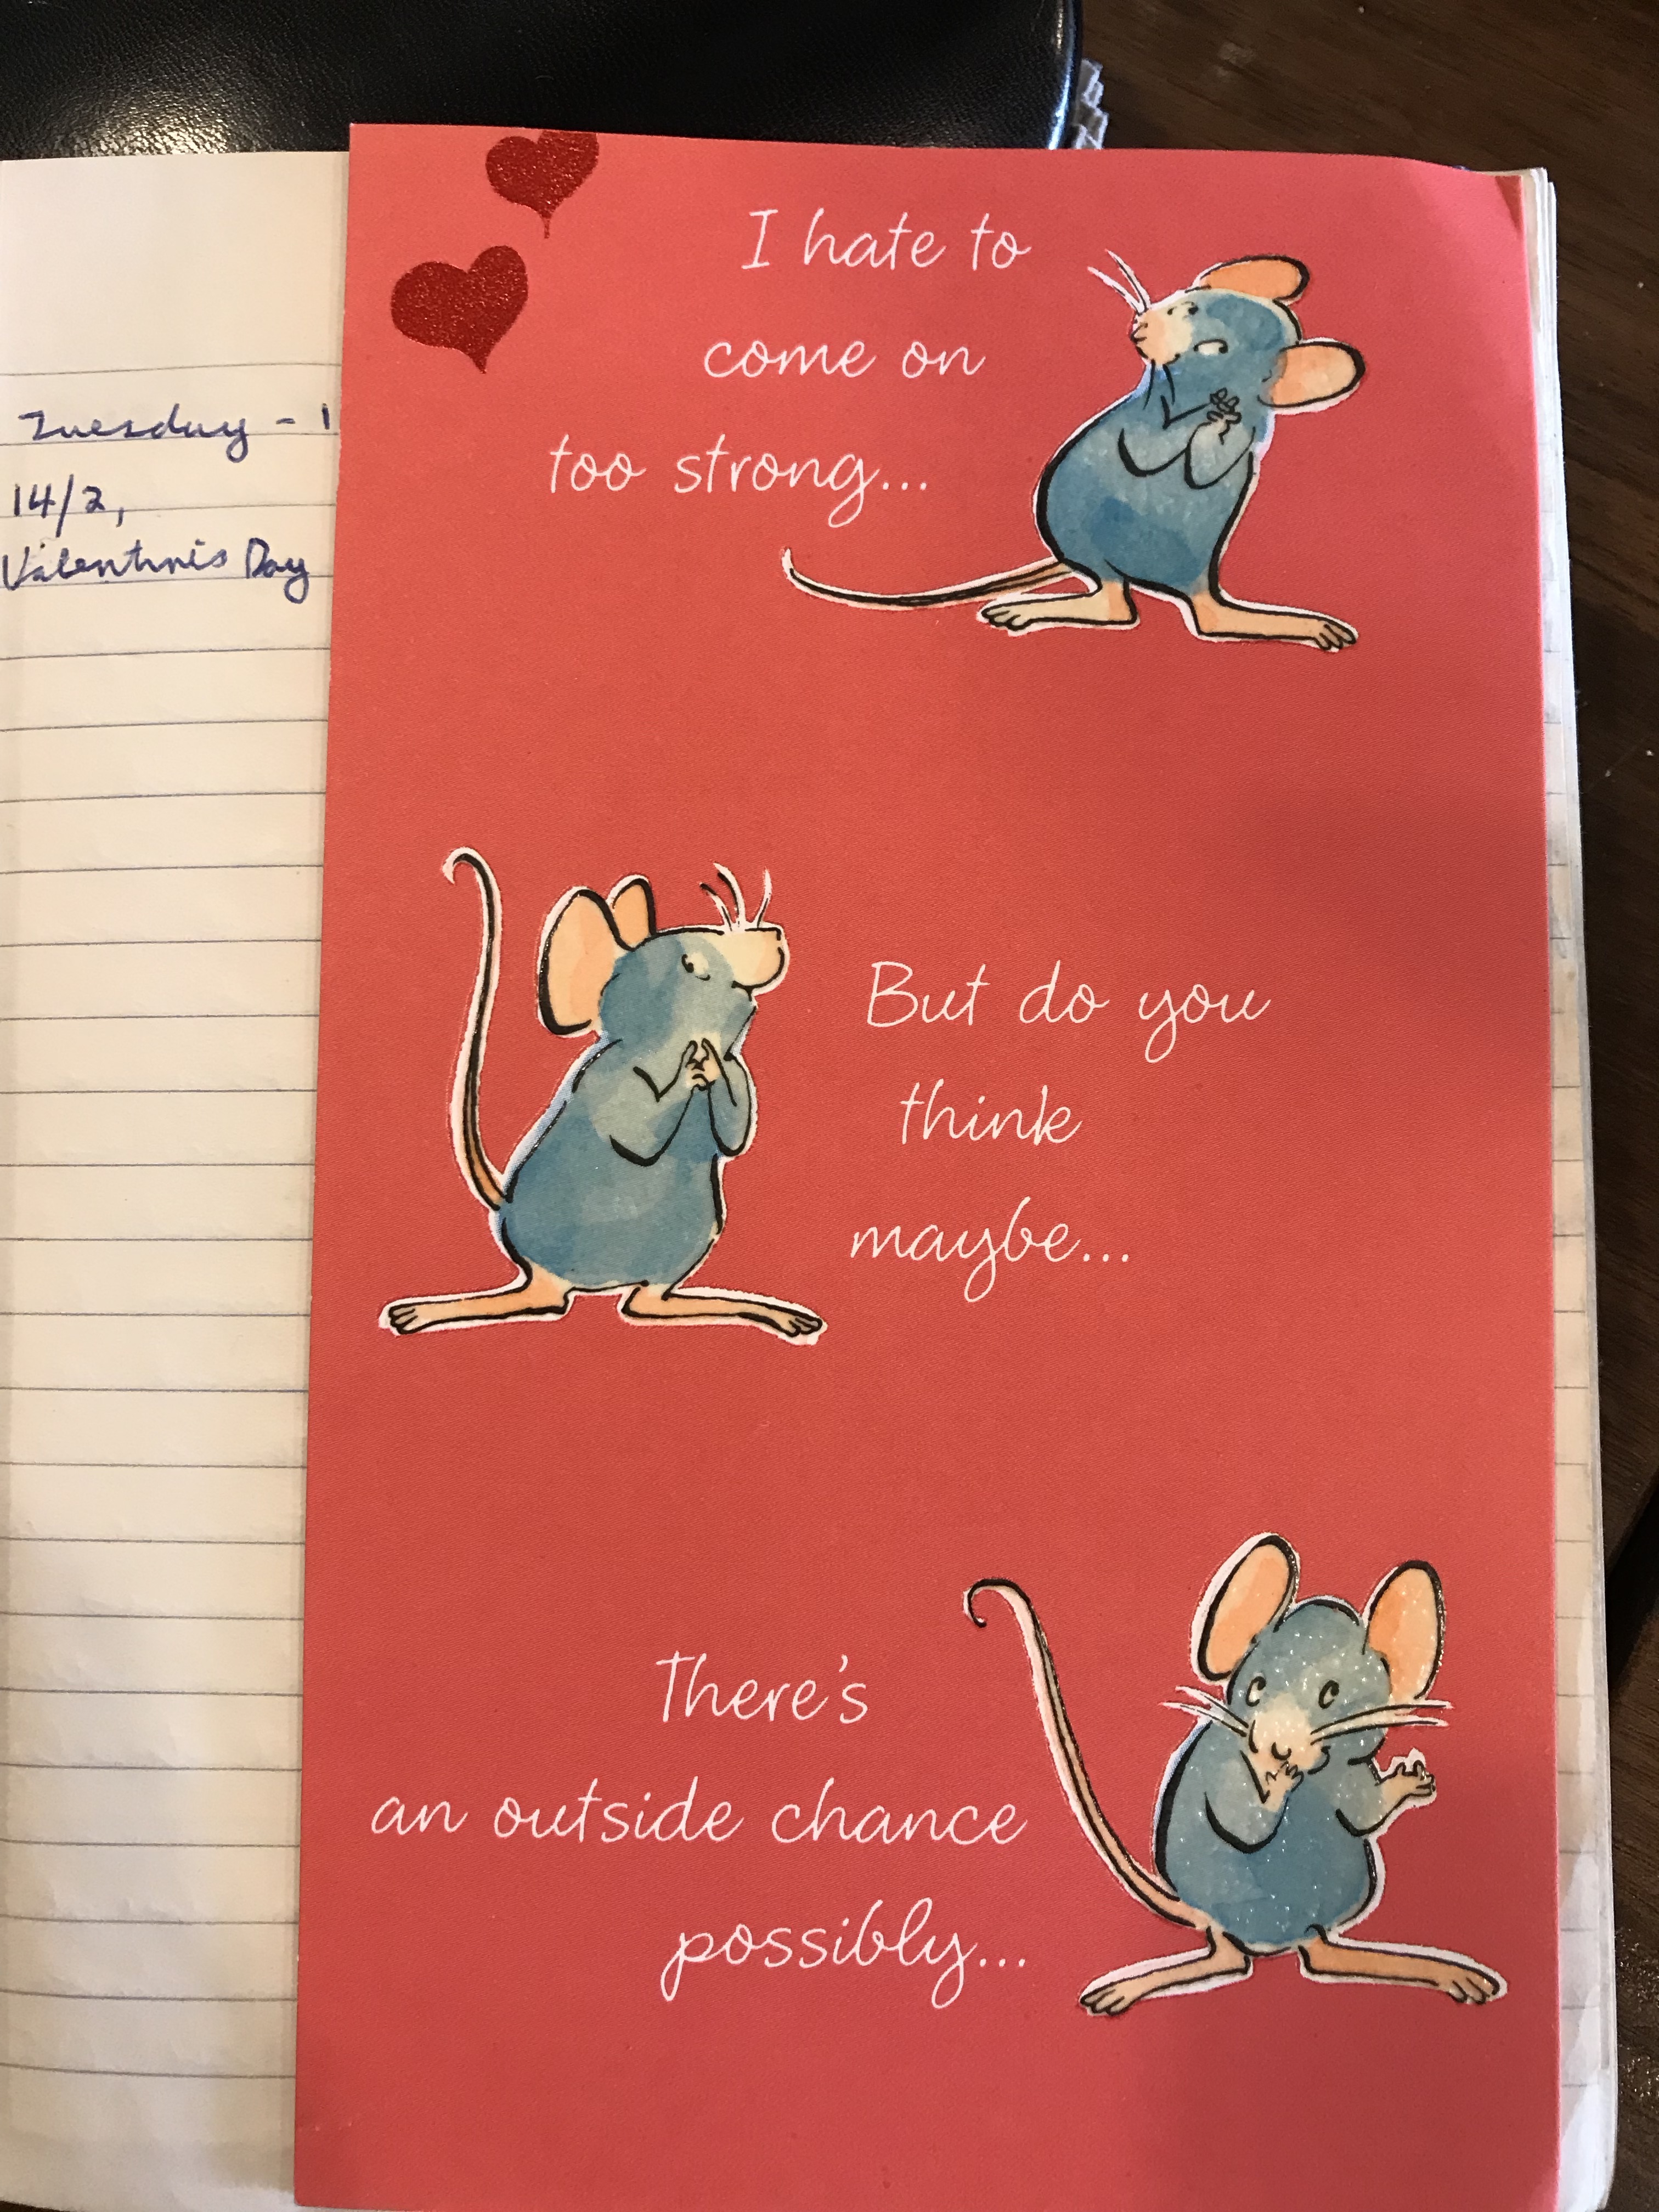 Tuesday - 1
14/2,
Valentine's Day
I hate to
come on
too strong...
But do you
think
maybe...
There's
an outside chance
possibly...